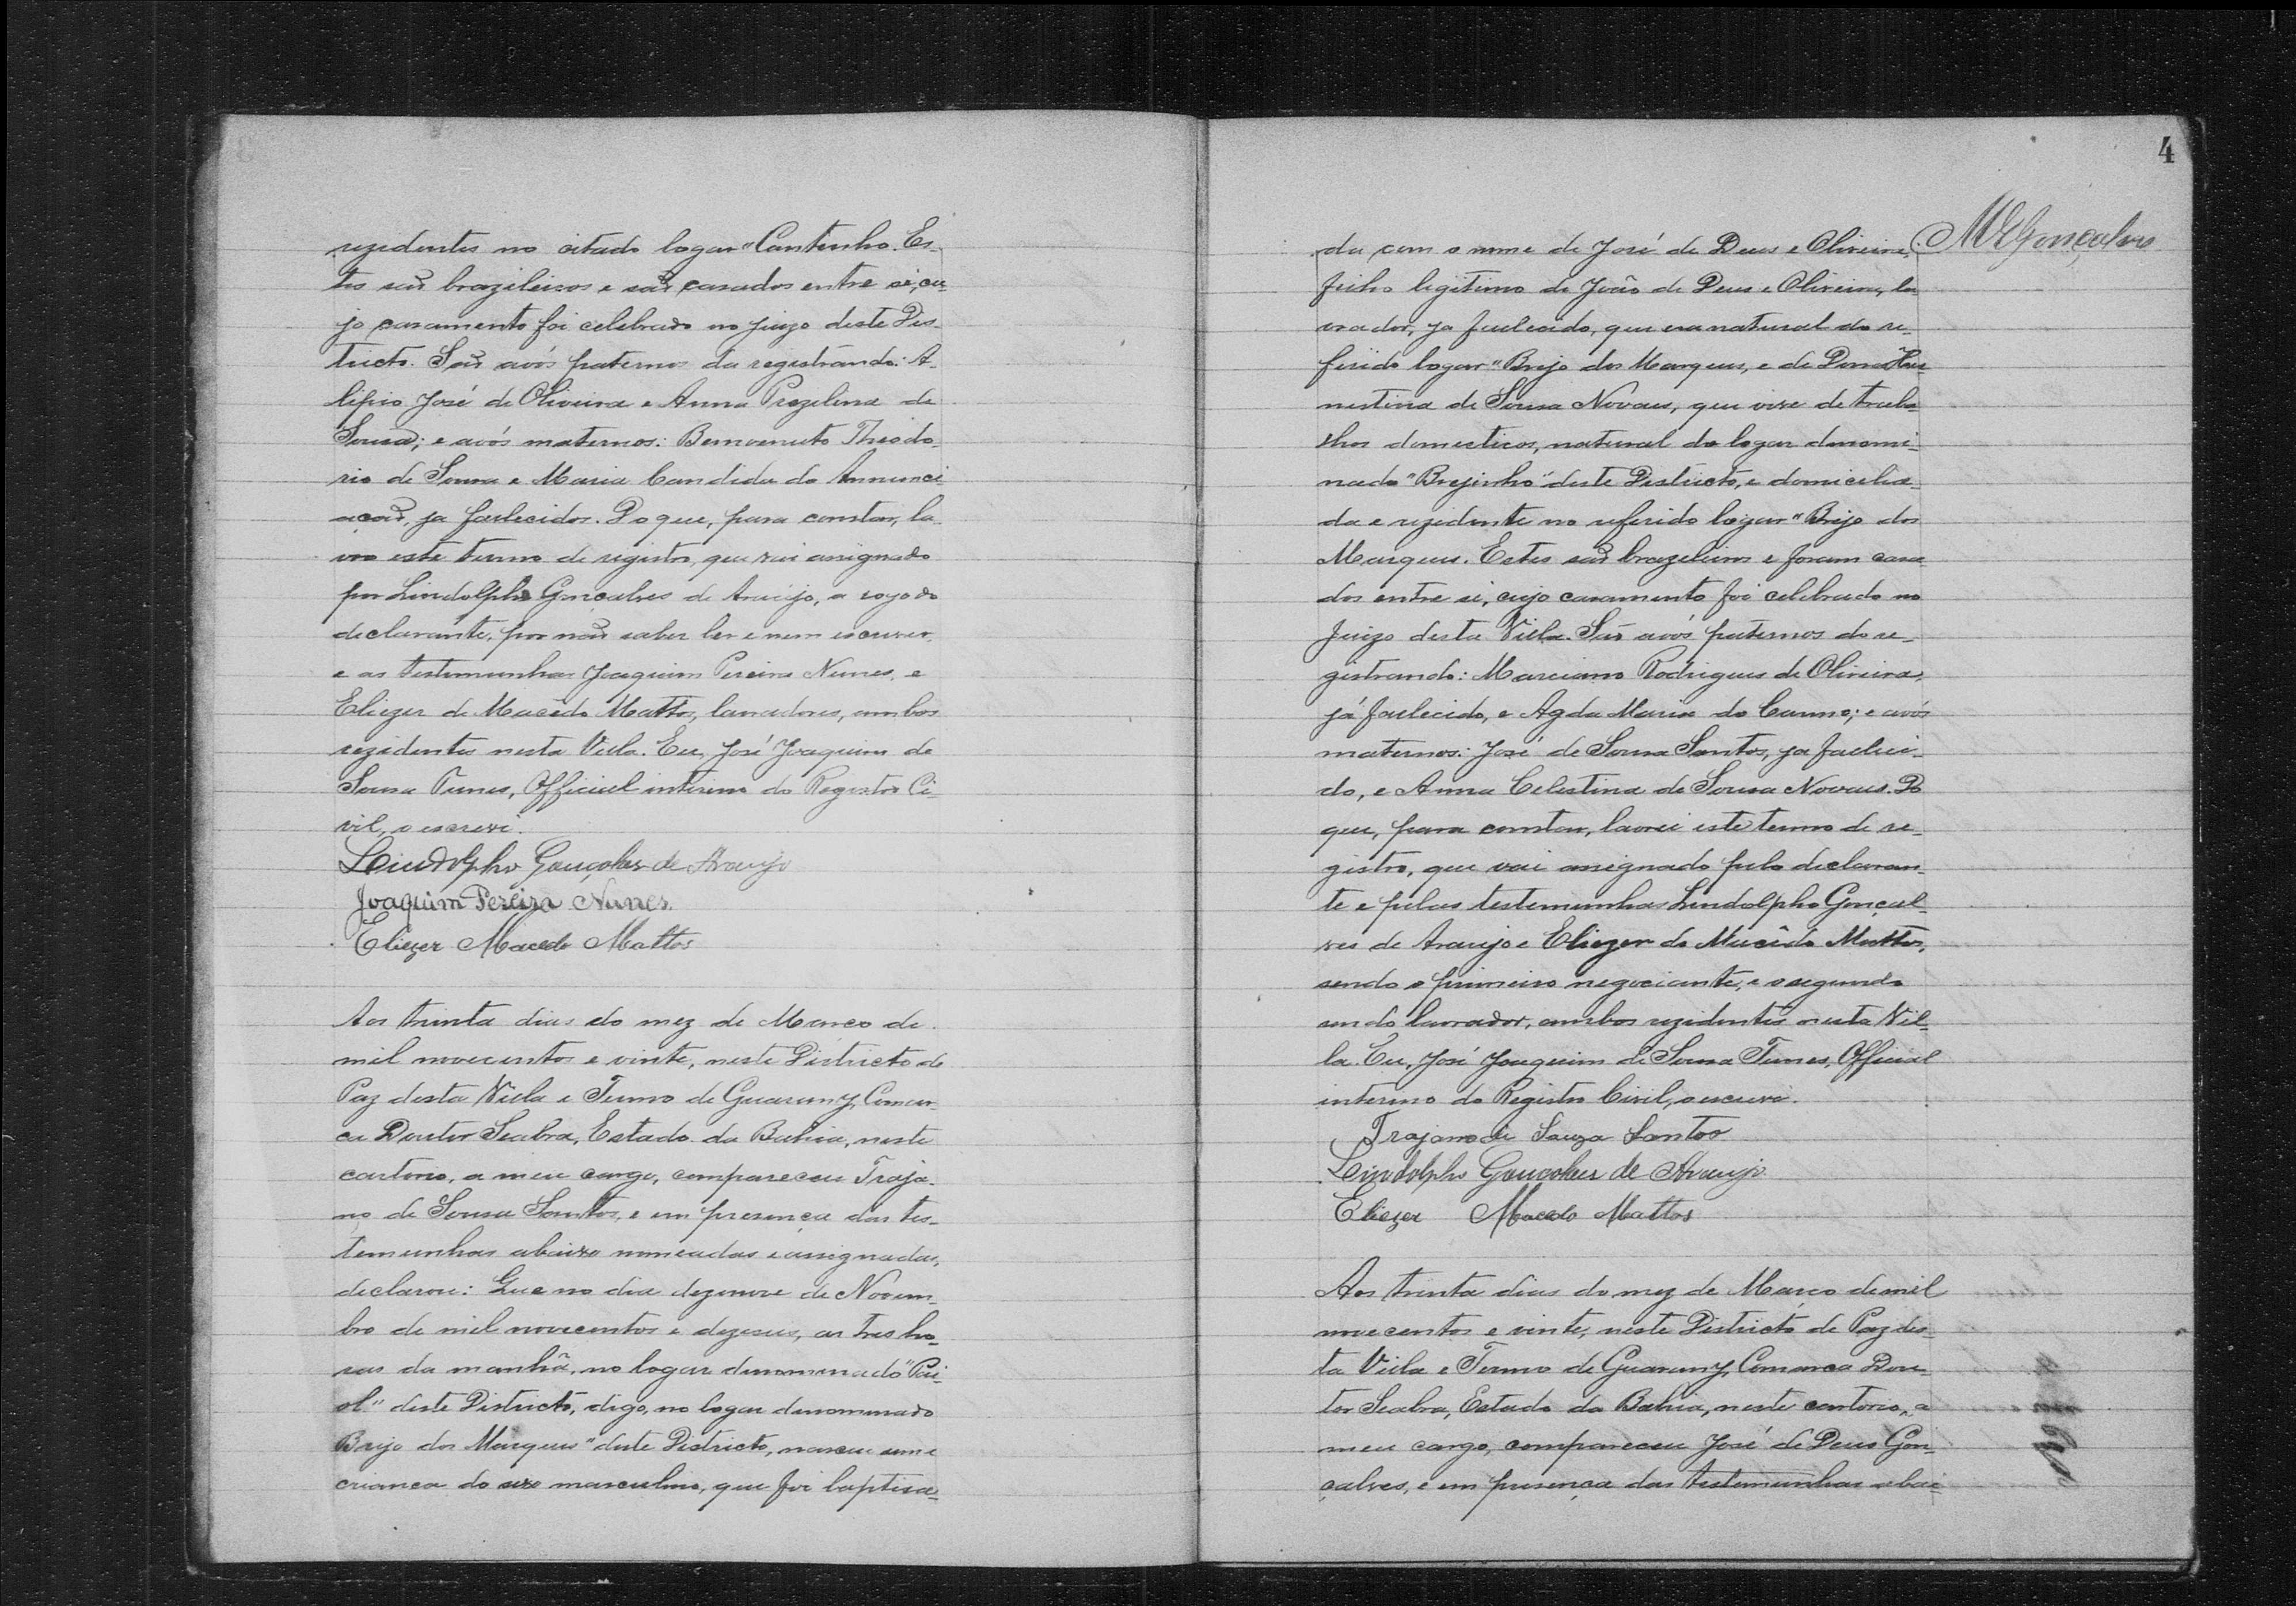 rezidentes no citado logar "Cantinho. Es-
tes saõ brazileiros e saõ casados entre si, cu-
jo casamento foi celebrado no juizo deste Dis-
tricto. Saõ avós paternos da registranda: A-
lipio José de Oliveira e Anna Prezelina de
Sousa; e avós maternos: Bemvenuto Theodo-
rio de Sousa e Maria Candida da Annunci-
açaõ, ja fallecidos. Do que, para constar, la-
vro este termo de registro, que vai assignado
por Lindolpho Gonçalves de Araujo, a rogo do
declarante, por naõ saber ler e nem escrever,
e as testemunhas Joaquim Pereira Nunes, e
Eliezer de Macêdo Mattos, lavradores, ambos
rezidentes nesta Villa. Eu, José Joaquim de
Sousa Tunes, Official interino do Registro Ci-
vil, o escrevi.
Lindolpho Gonçalves de Araujo
Joaquim Pereira Nunes.
Eliezer Macedo Mattos
Aos trinta dias do mez de Março de
mil novecentos e vinte, neste Districto de
Paz desta Villa e Termo de Guarany, Comar-
ca Doutor Seabra, Estado da Bahia, neste
cartorio, a meu cargo, compareceu Traja-
no de Sousa Santos, e em presença das tes-
temunhas abaixo nomeadas e assignadas,
declarou: Que no dia dezenove de Novem-
bro de mil novecentos e dezeseis, as tres ho-
ras da manhã, no logar denominado "Pai-
ol" deste Districto, digo, no logar denominado
Brejo dos Marques" deste Districto, nasceu uma
criança do sexo masculino, que foi baptisa-
4
da com o nome de José de Deus e Oliveira,
MVGonçalves
filho legitimo de João de Deus e Oliveira, la-
vrador, ja fallecido, que era natural do re-
ferido logar "Brejo dos Marques, e de Dona
nestina de Sousa Novaes, que vive de traba-
lhos domesticos, natural do logar denomi-
nado "Brejinho" deste Districto, e domicilia-
da e rezidente no referido logar "Brejo dos
Marques. Estes saõ brazileiros e foram casa-
dos entre si, cujo casamento foi celebrado no
Juizo desta Villa. Saõ avós paternos do re-
gistrando: Marciano Rodrigues de Oliveira,
já fallecido, e Agda Maria do Carmo; e avós
maternos: José de Sousa Santos, ja falleci-
do, e Anna Celestina de Sousa Novaes. Do
que, para constar, lavrei este termo de re-
gistro, que vai assignado pelo declaran-
te e pelas testemunhas Lindolpho Gonçal-
ves de Araujo e Eliezer de Macêdo Mattos,
sendo o primeiro negociante, e o segundo
sendo lavrador, ambos rezidentes nesta Vil-
la. Eu, José Joaquim de Sousa Tunes, Official
interino do Registro Civil, o escrevi.
Trajano de Souza Santos
Lindolpho Gonçalves de Araujo
Eliezer Macedo Mattos
Aos trinta dias do mez de Março de mil
novecentos e vinte, neste Districto de Paz des-
ta Villa e Termo de Guarany, Comarca Dou-
tor Seabra, Estado da Bahia, neste cartorio, a
meu cargo, compareceu José de Deus Gon-
çalves, e em presença das testemunhas abai-